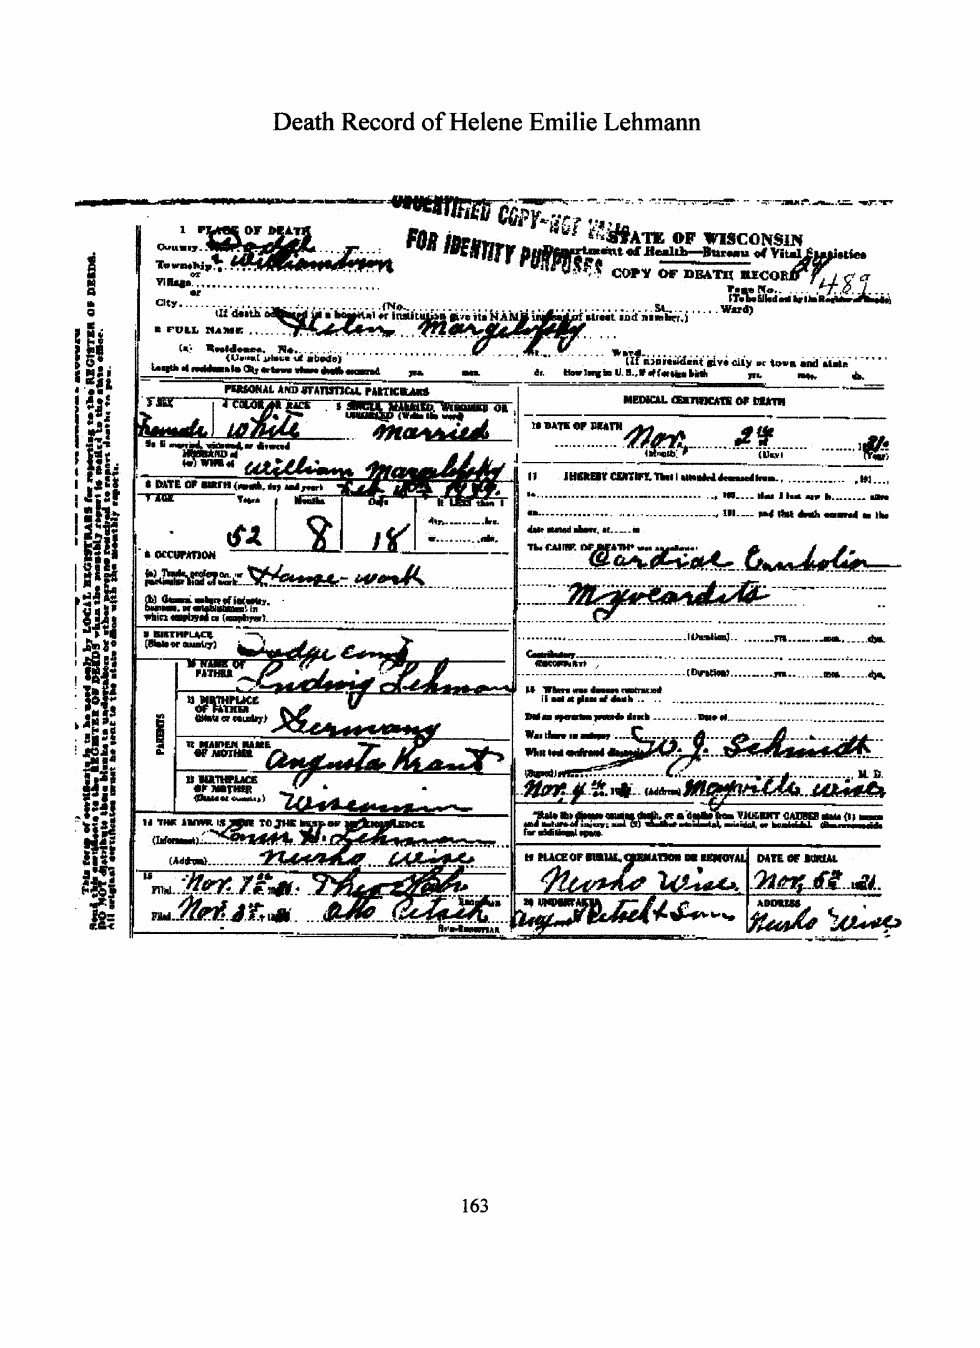 Death Record of Helene Emilie Lehmann
UNCERTIFIED COPY-NOT VALID
FOR IDENTITY PURPOSES
1 PLACE OF DEATH
County Dodge
Township Williamstown
or
Village
or
City
STATE OF WISCONSIN
Department of Health—Bureau of Vital Statistics
COPY OF DEATH RECORD
489
Page No.
(To be filled out by the Register of Deeds)
(No. St. Ward)
(If death occurred in a hospital or institution give its NAME instead of street and number.)
2 FULL NAME Helen Margelofsky
(a) Residence. No. St. Ward
(Usual place of abode) (If nonresident give city or town and state
Length of residence in City or town where death occurred yrs. mos. ds. How long in U. S., if of foreign birth yrs. mos. ds.
PERSONAL AND STATISTICAL PARTICULARS
3 SEX
4 COLOR OR RACE
5 SINGLE, MARRIED, WIDOWED OR
(Write the word)
Female White married
5a If married, widowed, or divorced
HUSBAND of
(or) WIFE of William Margelofsky
6 DATE OF BIRTH (month, day and year) Feb
7 AGE Years Months Days If LESS than 1
52 8 18
8 OCCUPATION
(a) Trade, profession, or
particular kind of work House-work
(b) General nature of industry,
business, or establishment in
which employed or (employer)
9 BIRTHPLACE
(State or country) Dodge County
PARENTS
10 NAME OF
FATHER Ludwig Lehman
11 BIRTHPLACE
OF FATHER
(State or country) Germany
12 MAIDEN NAME
OF MOTHER Augusta Kraut
13 BIRTHPLACE
OF MOTHER
(State or country) Wisconsin
14 THE ABOVE IS TRUE TO THE BEST OF MY KNOWLEDGE
(Informant) H. Lehmann
(Address) Neosho Wisc
15
Filed Nov. 7
Filed Nov. Otto
MEDICAL CERTIFICATE OF DEATH
16 DATE OF DEATH
Nov. 2
(Month) (Day) (Year)
17 I HEREBY CERTIFY, That I attended deceased from
that I last saw h alive
on and that death occurred on the
date stated above, at m
The CAUSE OF DEATH* was as follows:
Cardial Embolism
Myocarditis
(Duration) yrs. mos. dys.
Contributory
(SECONDARY)
(Duration) yrs. mos. dys.
18 Where was disease contracted
if not at place of death
Did an operation precede death Date of
Was there an autopsy
What test confirmed diagnosis
(Signed) W. J. Schmidt M. D.
Nov. 4 (Address) Mayville Wisc
*State the disease causing death, or in deaths from VIOLENT CAUSES state (1) means
and nature of injury; and (2) whether accidental, suicidal, or homicidal. (See reverse side
for additional space.
19 PLACE OF BURIAL, CREMATION OR REMOVAL
DATE OF BURIAL
Neosho Wisc. Nov. 5
20 UNDERTAKER
ADDRESS
August & Son Neosho Wisc
This form of certificate to be used only by LOCAL REGISTRARS for reporting to the REGISTER OF DEEDS.
163